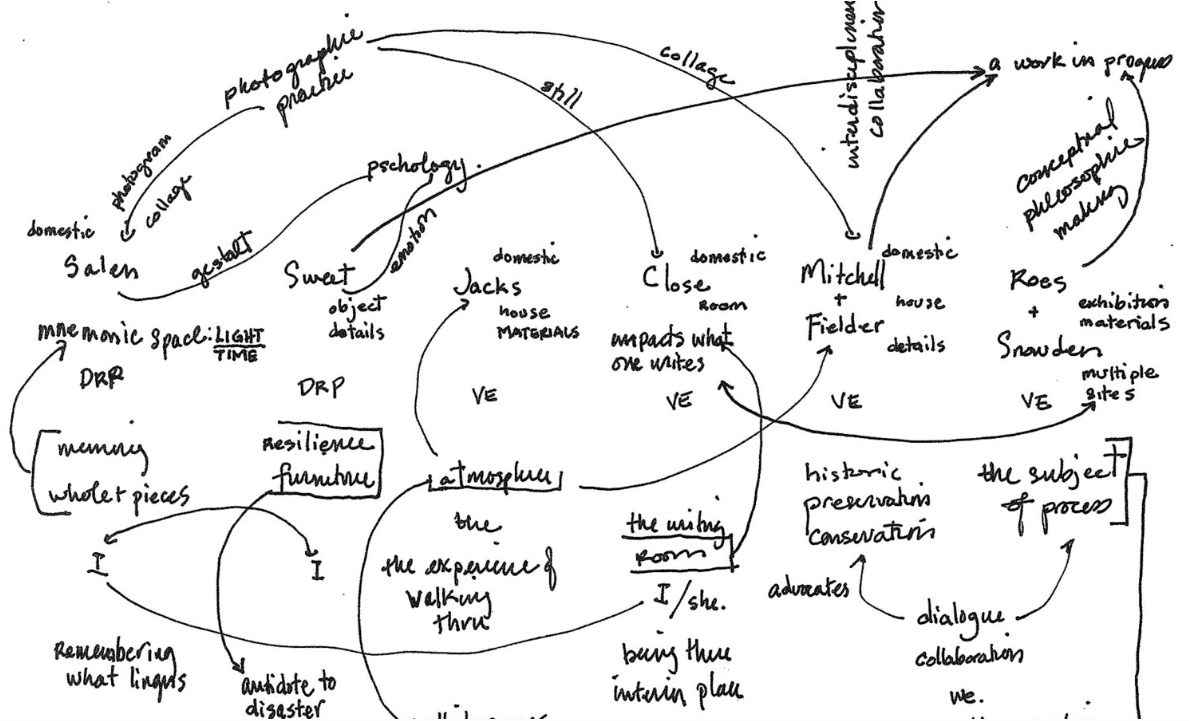 photographic
practice
collage
still
interdisciplinary
collaboration
a work in progress
photogram
collage
pschology.
conceptual
making
domestic
Salen
gestalt
Sweet
emotion
object
details
domestic
Jacks
house
MATERIALS
domestic
Close
ROOM
domestic
Mitchell
+
Fielder
house
details
Roes
+
Snowden
exhibition
materials
multiple
sites
mnemonic space: LIGHT
TIME
impacts what
one writes
DRP
DRP
VE
VE
VE
VE
memory
whole + pieces
Resilience
furniture
atmosphere
historic
preservation
conservation
the subject
of process
the
the experience of
walking
thru
the writing
ROOM
I
I
I/she.
advocates
dialogue
collaboration
we.
Remembering
what lingers
antidote to
disaster
being there
interior place